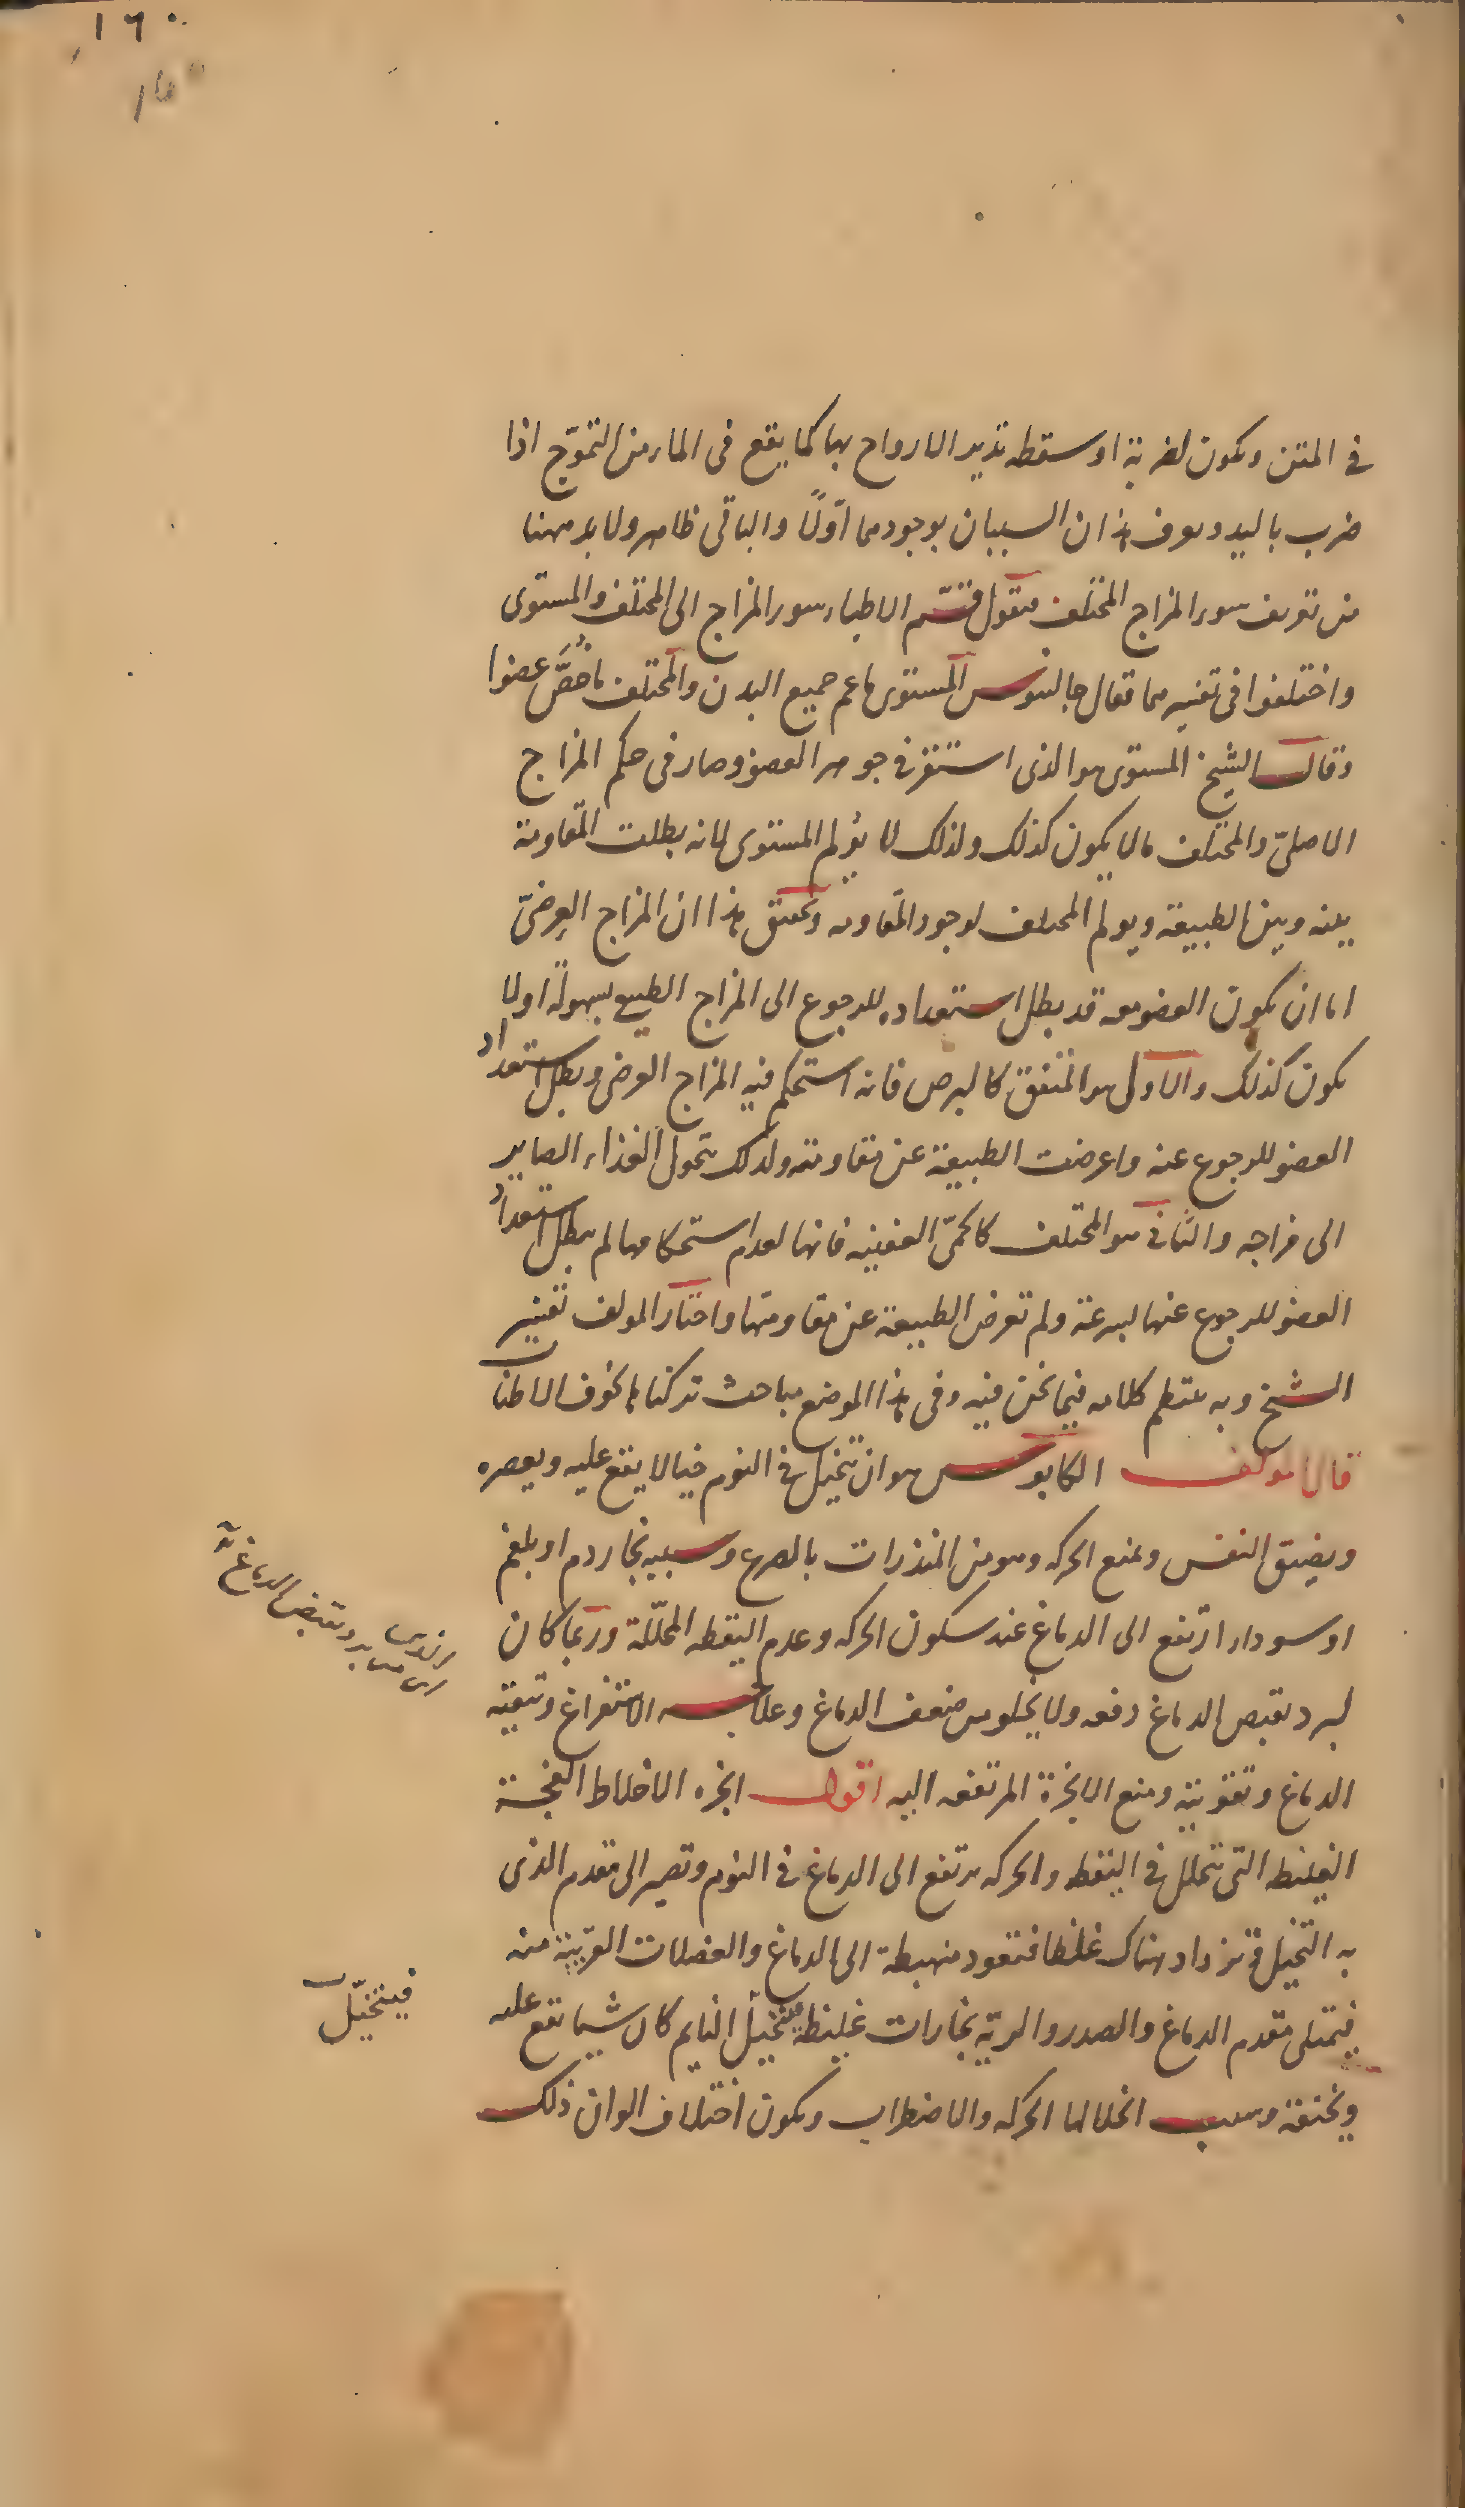 ١٦٠
في المتن ويكون لضربة او سقطه تدير الارواح بها كما يقع فى الماء من التموّج اذا
ضرب باليد ويعرف هذان السببان بوجودهما أوّلاً والباقى ظاهر ولا بد ههنا
من تعريف سوء المزاج المختلف فنقول قسّم الاطباء سوء المزاج الى المختلف والمستوى
واختلفوا فى تفسيرهما فقال جالينوس المستوى ما عم جميع البدن والمختلف ما خُصَّ عضوا
وقال الشيخ المستوى هو الذى استقر فى جوهر العضو وصار فى حكم المزاج
الاصلىّ والمختلف ما لا يكون كذلك ولذلك لا يؤلم المستوى لانه بطلت المقاومة
بينه وبين الطبيعة ويولم المختلف لوجود المقاومه وتحقيق هذا ان المزاج العرضىّ
اما ان يكون العضو معه قد بطل استعداده للرجوع الى المزاج الطبيعى بسهولة او لا
يكون كذلك والاول هو المتفق كالبرص فانه استحكم فيه المزاج العرضى وبطل استعداد
العضو للرجوع عنه واعرضت الطبيعة عن مقاومته ولذلك يتحول الغذاء الصاير
الى مزاجه والثانى هو المختلف كالحمىّ العفنيه فانها لعدم استحكامها لم يبطل استعداد
العضو للرجوع عنها بسرعة ولم تعرض الطبيعة عن مقاومتها واختار المولف تفسير
الشيخ وبه ينتظم كلامه فيما نحن فيه وفى هذا الموضع مباحث تركناها لخوف الاطناب
قال المولف الكابوس هو ان يتخيل فى النوم خيالا يقع عليه ويعصره
ويضيق النفس ويمنع الحركه وهو من المنذرات بالصرع وسببه بخار دم او بلغم
او سوداء ارتفع الى الدماغ عند سكون الحركه وعدم اليقظه المحلّلة وربما كان
لبرد يقبض الدماغ دفعه ولا يخلو من ضعف الدماغ وعلاجه الاستفراغ وتنقية
الدماغ وتقويته ومنع الابخرة المرتفعه اليه اقول ابخره الاخلاط الفجة
الغليظه التى تتحلل فى اليقظه والحركه ترتفع الى الدماغ فى النوم وتصير الى مقدم الذى
به التخيل فتزداد هناك غلظا فتعود منهبطة الى الدماغ والعضلات القريبة منه
فيمتلى مقدم الدماغ والصدر والرية بخارات غليظة فيتخيل النايم كان شيا يقع عليه
ويخنقه وسبب انخلالها الحركه والاضطراب ويكون اختلاف الوان ذلك
برد يقبض الدماغ
فيتخيّل